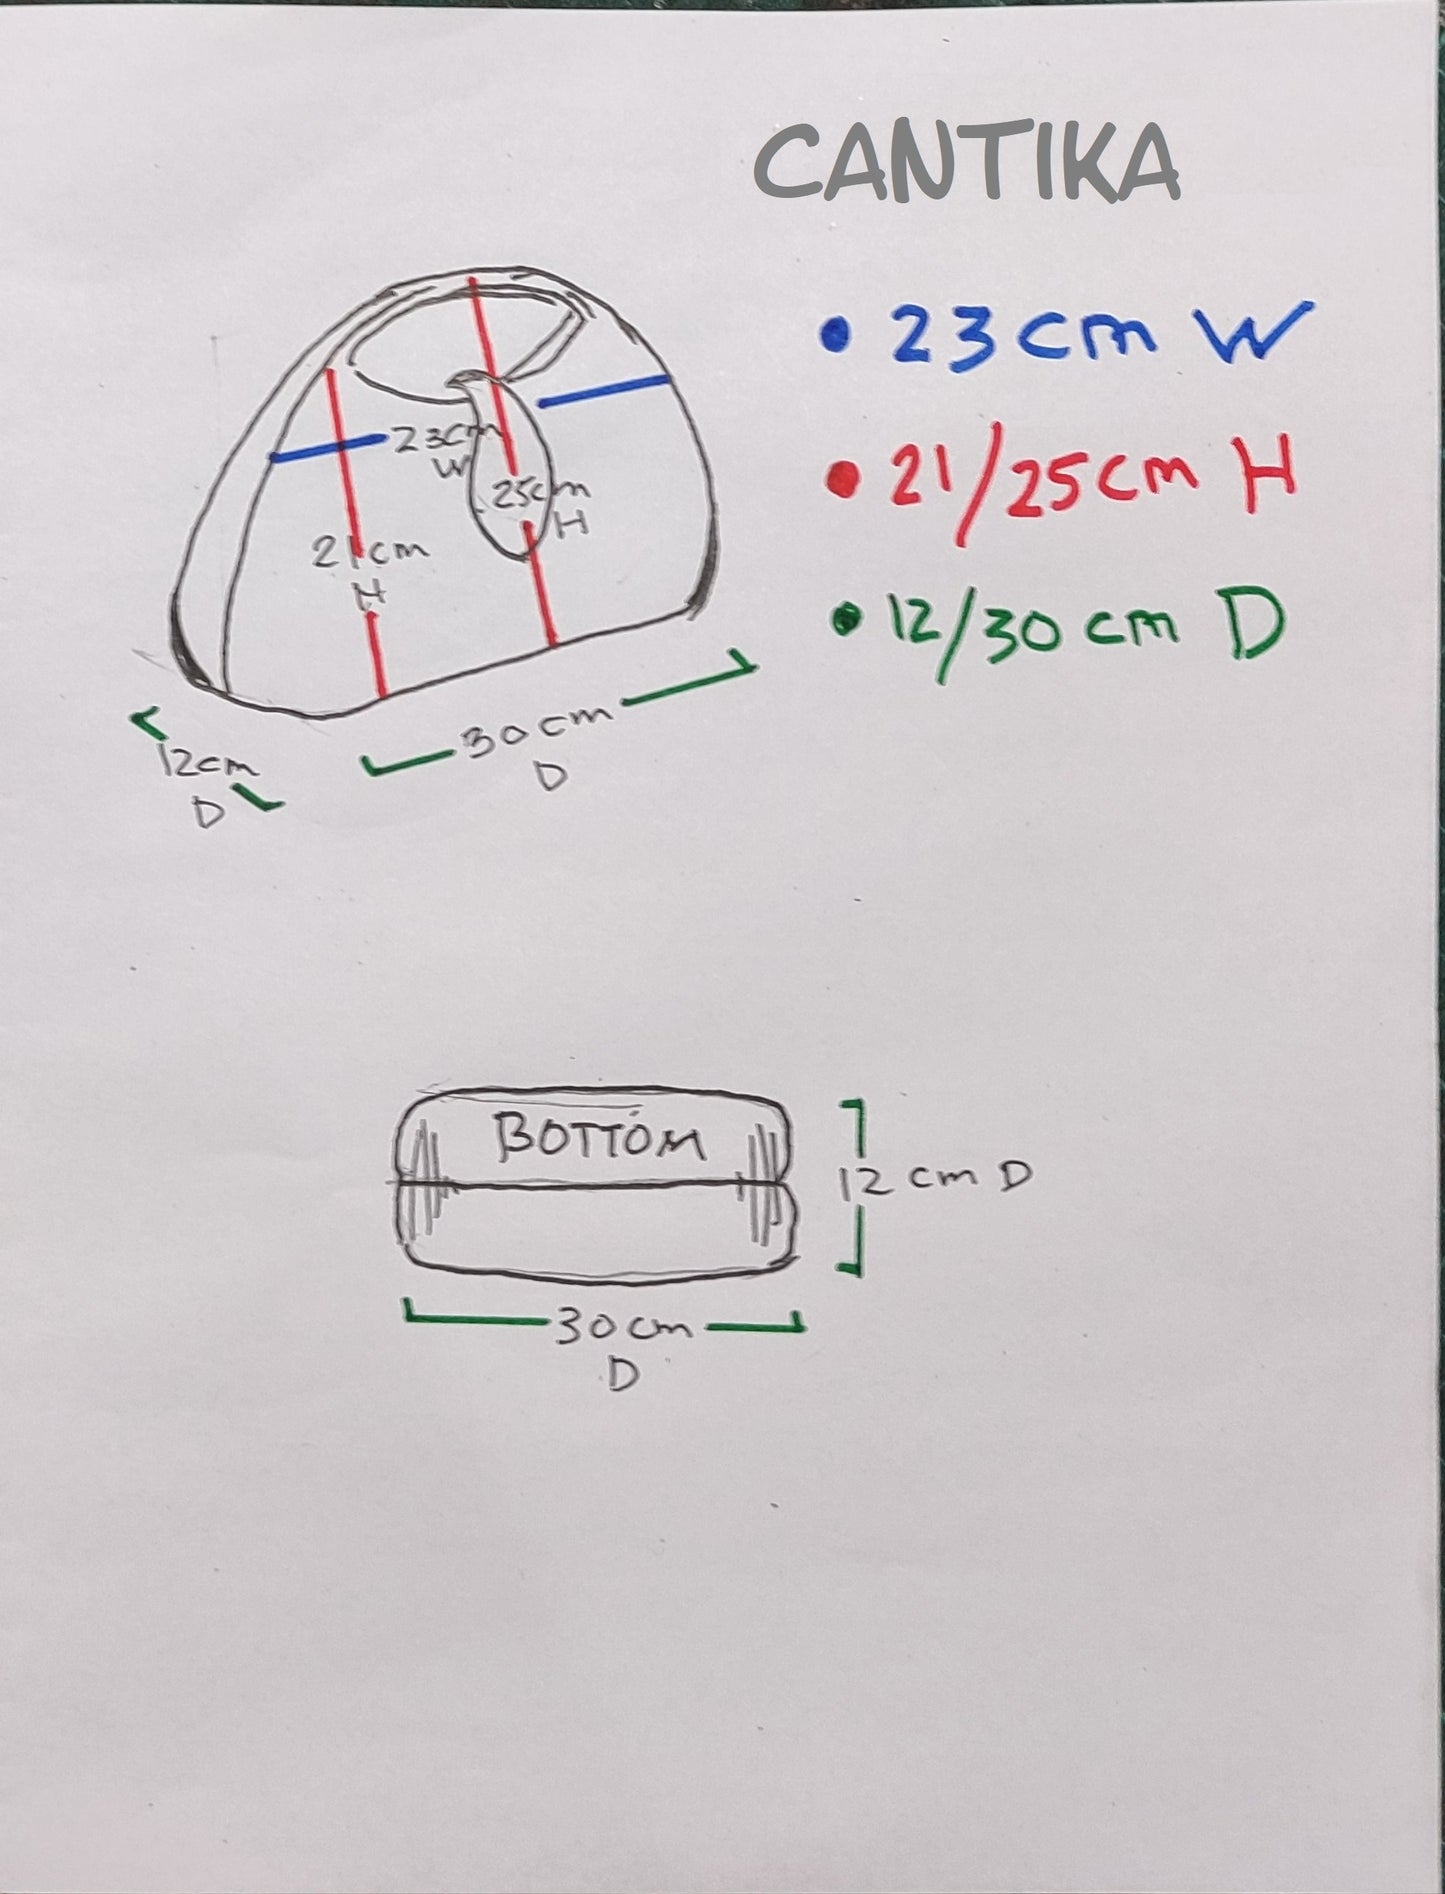 CANTIKA
• 23cm W
• 21/25cm H
• 12/30cm D
23cm
W
25cm
H
21cm
H
30cm
D
12cm
D
BOTTOM
12cm D
30cm
D